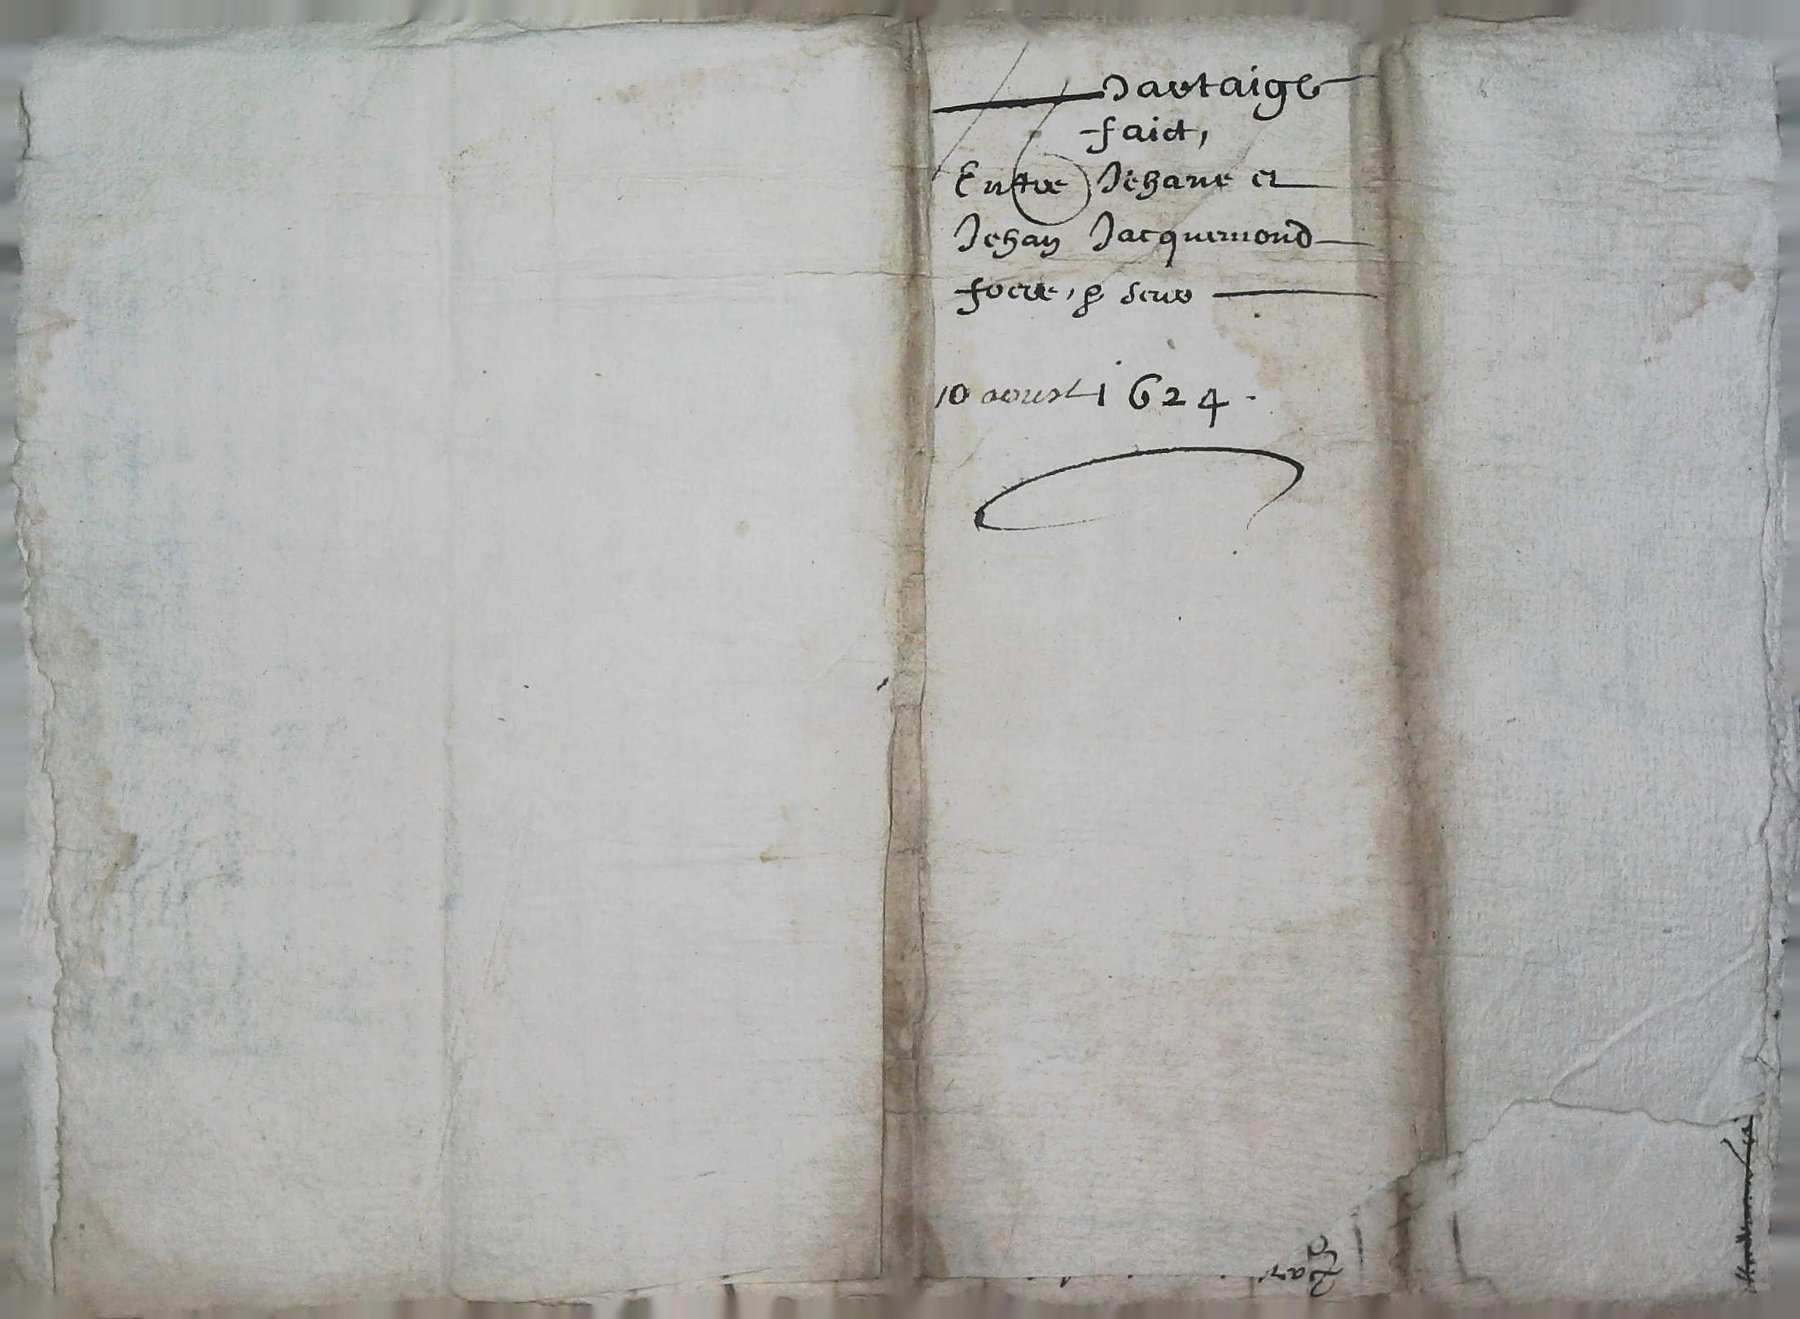 Partaige
faict,
Entre Jehane et
Jehan Jacquemond
frere, & seur
10 aoust 1624.